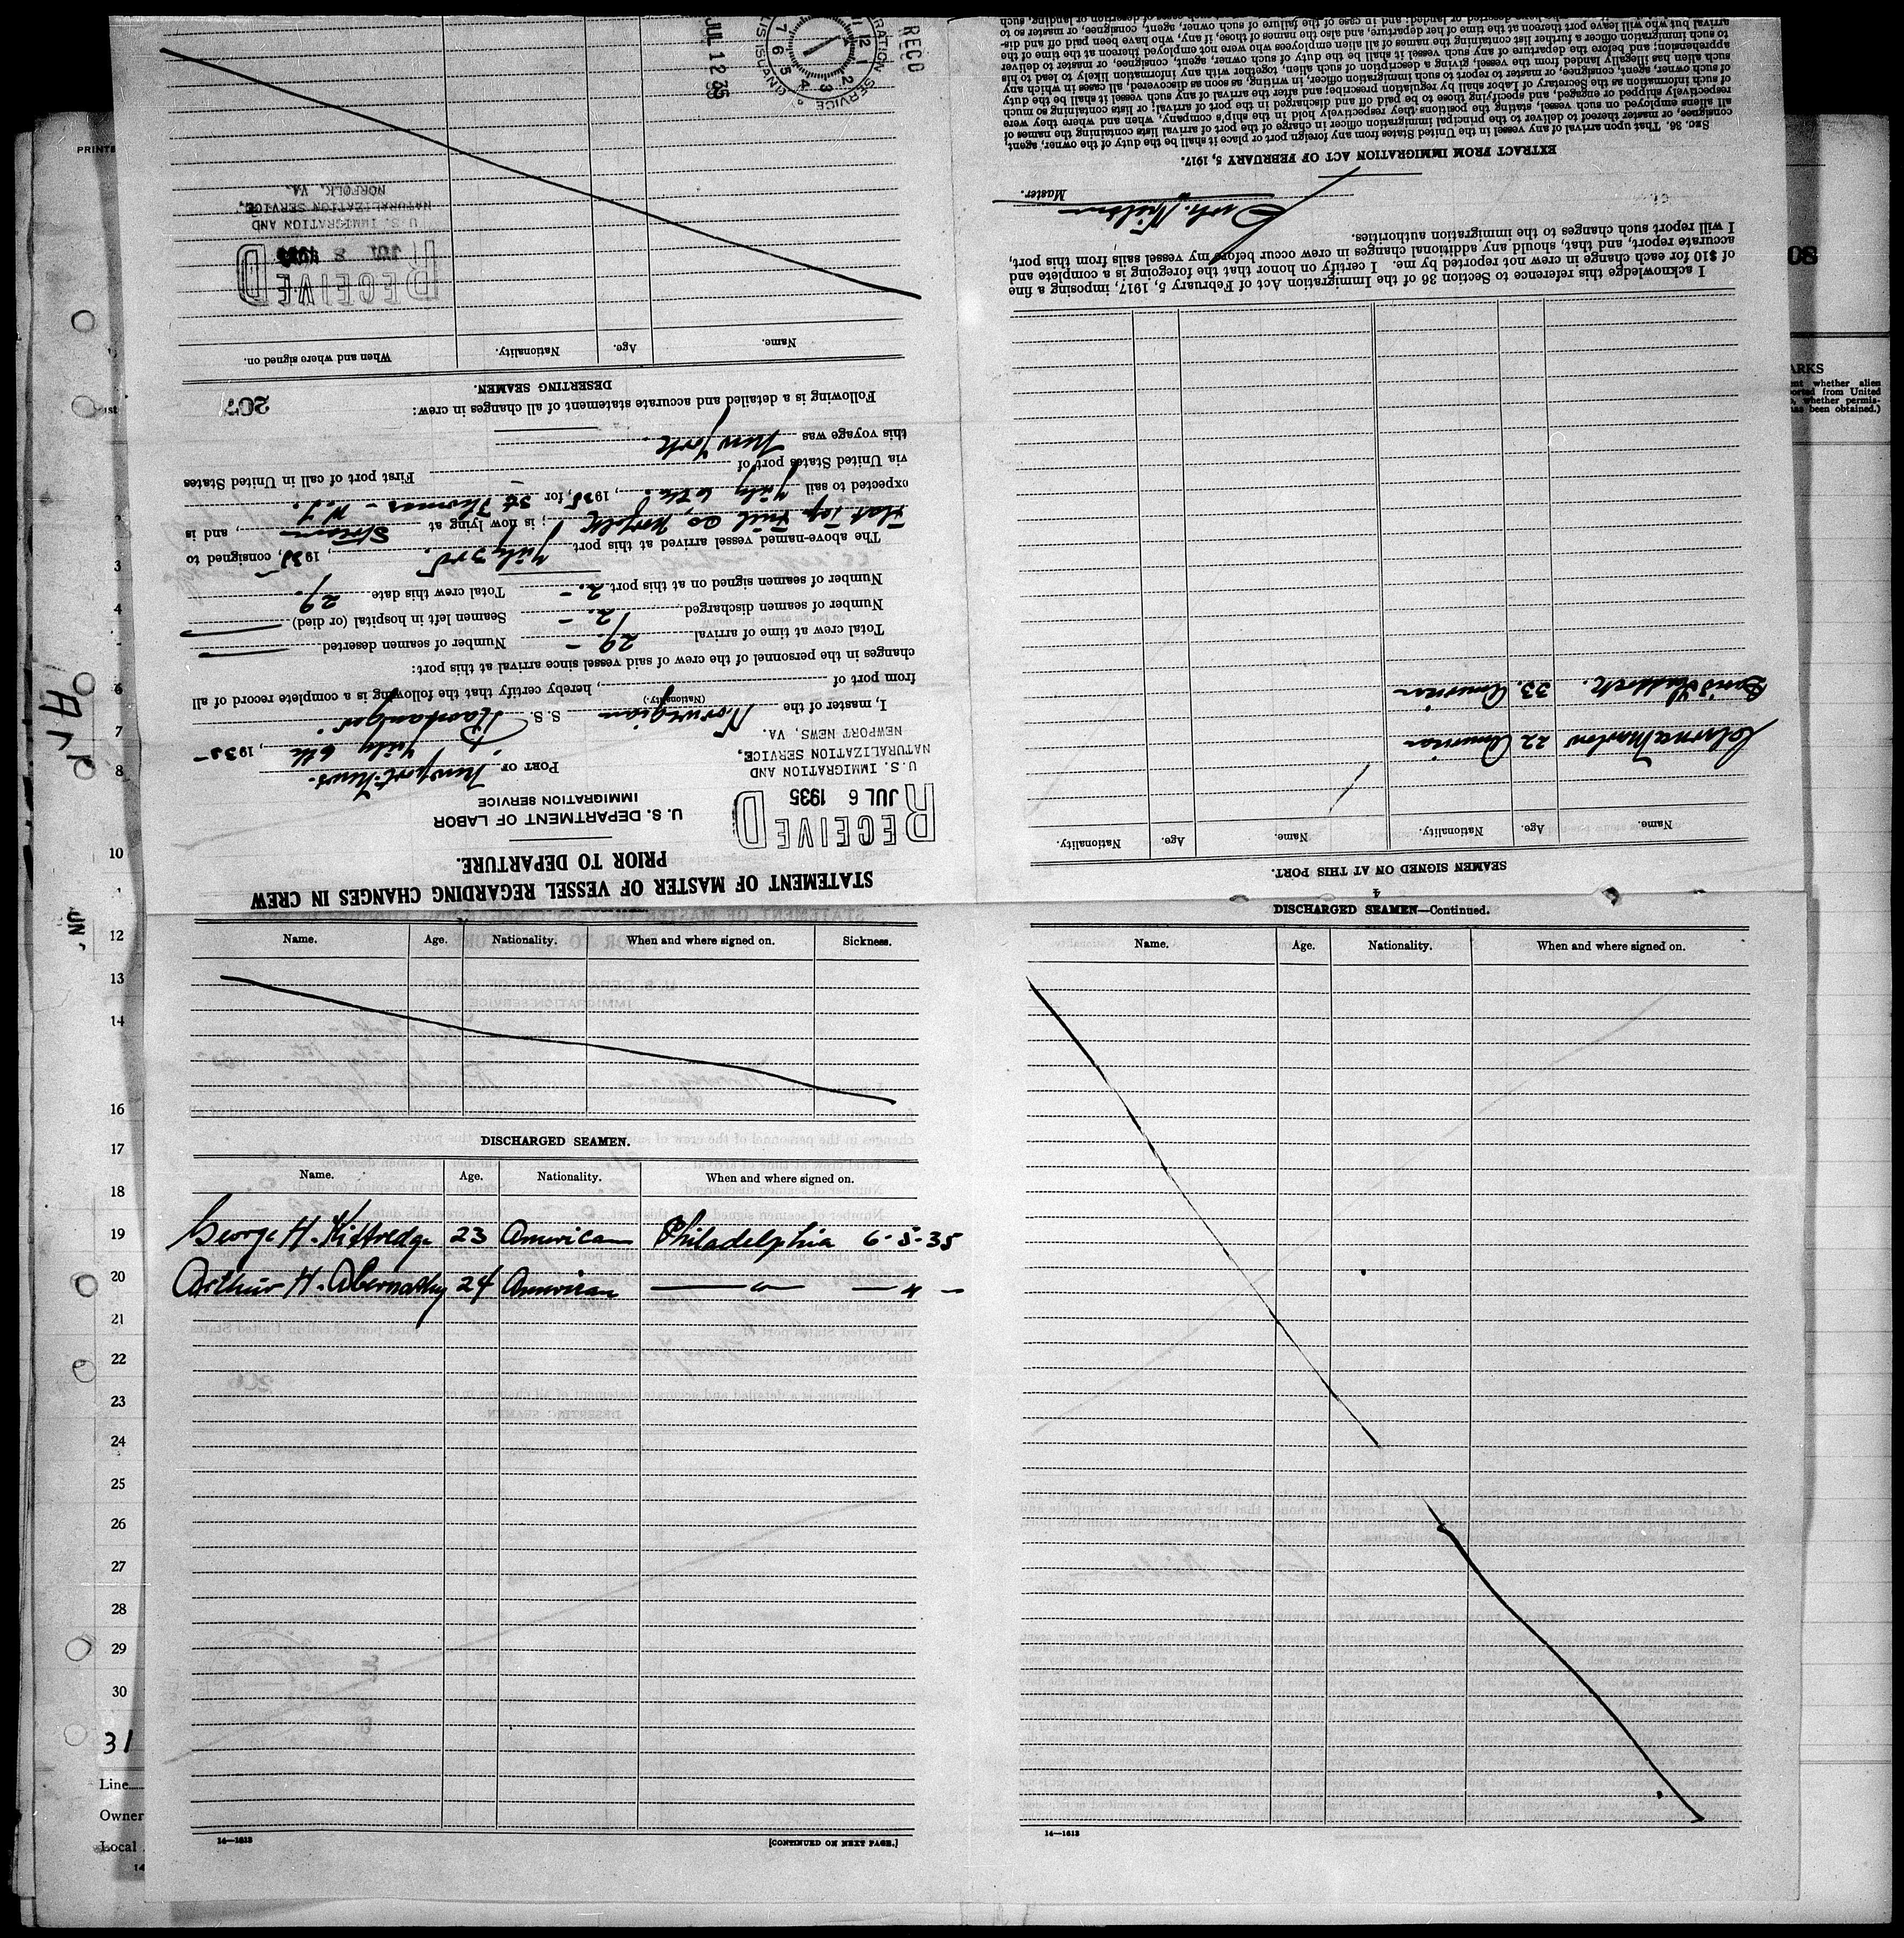 STATEMENT OF MASTER OF VESSEL REGARDING CHANGES IN CREW
PRIOR TO DEPARTURE.
U. S. DEPARTMENT OF LABOR
IMMIGRATION SERVICE
RECEIVED
JUL 6 1935
U. S. IMMIGRATION AND
NATURALIZATION SERVICE,
NEWPORT NEWS, VA.
PORT OF Newport News.
July 6th, 1935
I, master of the Norwegian S. S.
(Nationality.)
from port of , hereby certify that the following is a complete record of all
changes in the personnel of the crew of said vessel since arrival at this port:
Total crew at time of arrival 29 - Number of seamen deserted
Number of seamen discharged 2. - Seamen left in hospital (or died)
Number of seamen signed on at this port 2. - Total crew this date 29.
The above-named vessel arrived at this port July 3rd, 1935, consigned to
Flat Top Fuel Co Norfolk; is now lying at Stream, and is
expected to sail July 6th, 1935, for St Thomas - W. I.
via United States port of First port of call in United States
this voyage was New York.
Following is a detailed and accurate statement of all changes in crew:
207
DESERTING SEAMEN.
Name. Age. Nationality. When and where signed on.
RECEIVED
JUL 8
U. S. IMMIGRATION AND
NATURALIZATION SERVICE,
NORFOLK, VA.
RECD
JUL 12
SEAMEN SIGNED ON AT THIS PORT.
Name. Age. Nationality. Name. Age. Nationality.
22 American
33. American
I acknowledge this reference to Section 36 of the Immigration Act of February 5, 1917, imposing a fine
of $10 for each change in crew not reported by me. I certify on honor that the foregoing is a complete and
accurate report, and that, should any additional changes in crew occur before my vessel sails from this port,
I will report such changes to the immigration authorities.
Master.
EXTRACT FROM IMMIGRATION ACT OF FEBRUARY 5, 1917.
SEC. 36. That upon arrival of any vessel in the United States from any foreign port or place it shall be the duty of the owner, agent,
consignee, or master thereof to deliver to the principal immigration officer in charge of the port of arrival lists containing the names of
all aliens employed on such vessel, stating the positions they respectively hold in the ship's company, when and where they were
respectively shipped or engaged, and specifying those to be paid off and discharged in the port of arrival; or lists containing so much
of such information as the Secretary of Labor shall by regulation prescribe; and after the arrival of any such vessel it shall be the duty
of such owner, agent, consignee, or master to report to such immigration officer, in writing, as soon as discovered, all cases in which any
such alien has illegally landed from the vessel, giving a description of such alien, together with any information likely to lead to his
apprehension; and before the departure of any such vessel it shall be the duty of such owner, agent, consignee, or master to deliver
to such immigration officer a further list containing the names of all alien employees who were not employed thereon at the time of the
arrival but who will leave port thereon at the time of her departure, and also the names of those, if any, who have been paid off and dis-
Name. Age. Nationality. When and where signed on. Sickness.
DISCHARGED SEAMEN.
Name. Age. Nationality. When and where signed on.
George H. Kittredge 23 American Philadelphia 6-5-35
Arthur H. Abernathy 24 American — " — — " —
14—1613
[CONTINUED ON NEXT PAGE.]
DISCHARGED SEAMEN—Continued.
Name. Age. Nationality. When and where signed on.
14—1613
3
4
6
7
8
10
12
13
14
16
17
18
19
20
21
22
23
24
25
26
27
28
29
30
31
Line
Owner
Local